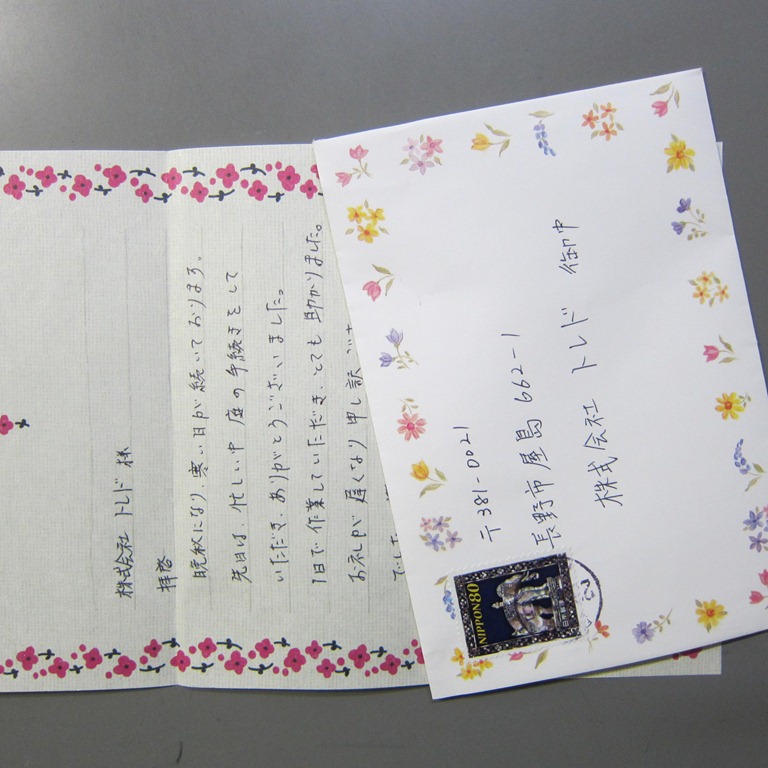 株式会社 トレド 様
拝啓
晩秋になり、寒い日が続いております。
先日は、忙しい中 庭の手続きをして
いただき、ありがとうございました。
1日で作業していただき、とても助かりました。
お礼が遅くなり申し訳ござ
でした
〒381-0021
長野市屋島 662-1
株式会社 トレド 御中
NIPPON 80
日本郵便